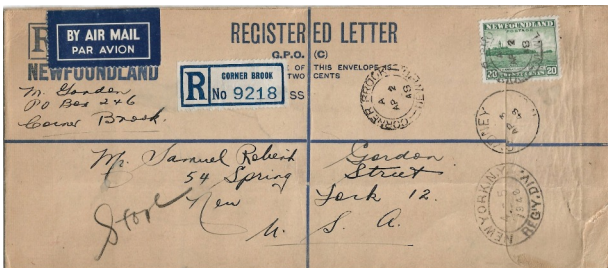 BY AIR MAIL
PAR AVION
R
REGISTERED LETTER
G.P.O. (C)
OF THIS ENVELOPE IS
TWO CENTS
NEWFOUNDLAND
R
CORNER BROOK
No 9218
SS
NEWFOUNDLAND
POSTAGE
20 20
CORNER BROOK
A
AP 2
48
M. Gordon
PO Box 246
Corner Brook.
SYDNEY
Mr. Samuel Robert Gordon
54 Spring Street
New York 12.
U. S. A.
Stock
NEW YORK, N.Y.
REG'Y. DIV.